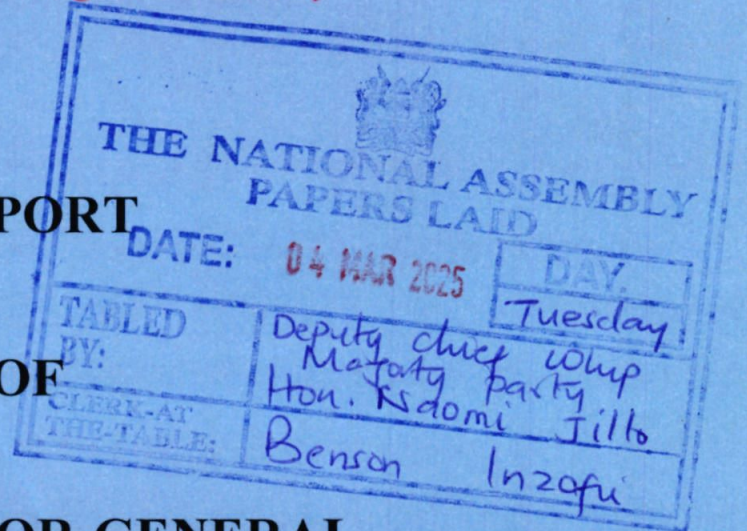 THE NATIONAL ASSEMBLY
PAPERS LAID
PORT
DATE: 04 MAR 2025
DAY.
Tuesday
TABLED
BY:
Deputy chief whip
Majority party
Hon. Naomi Jillo
OF
CLERK-AT
THE-TABLE:
Benson Inzofu
OR-GENERAL